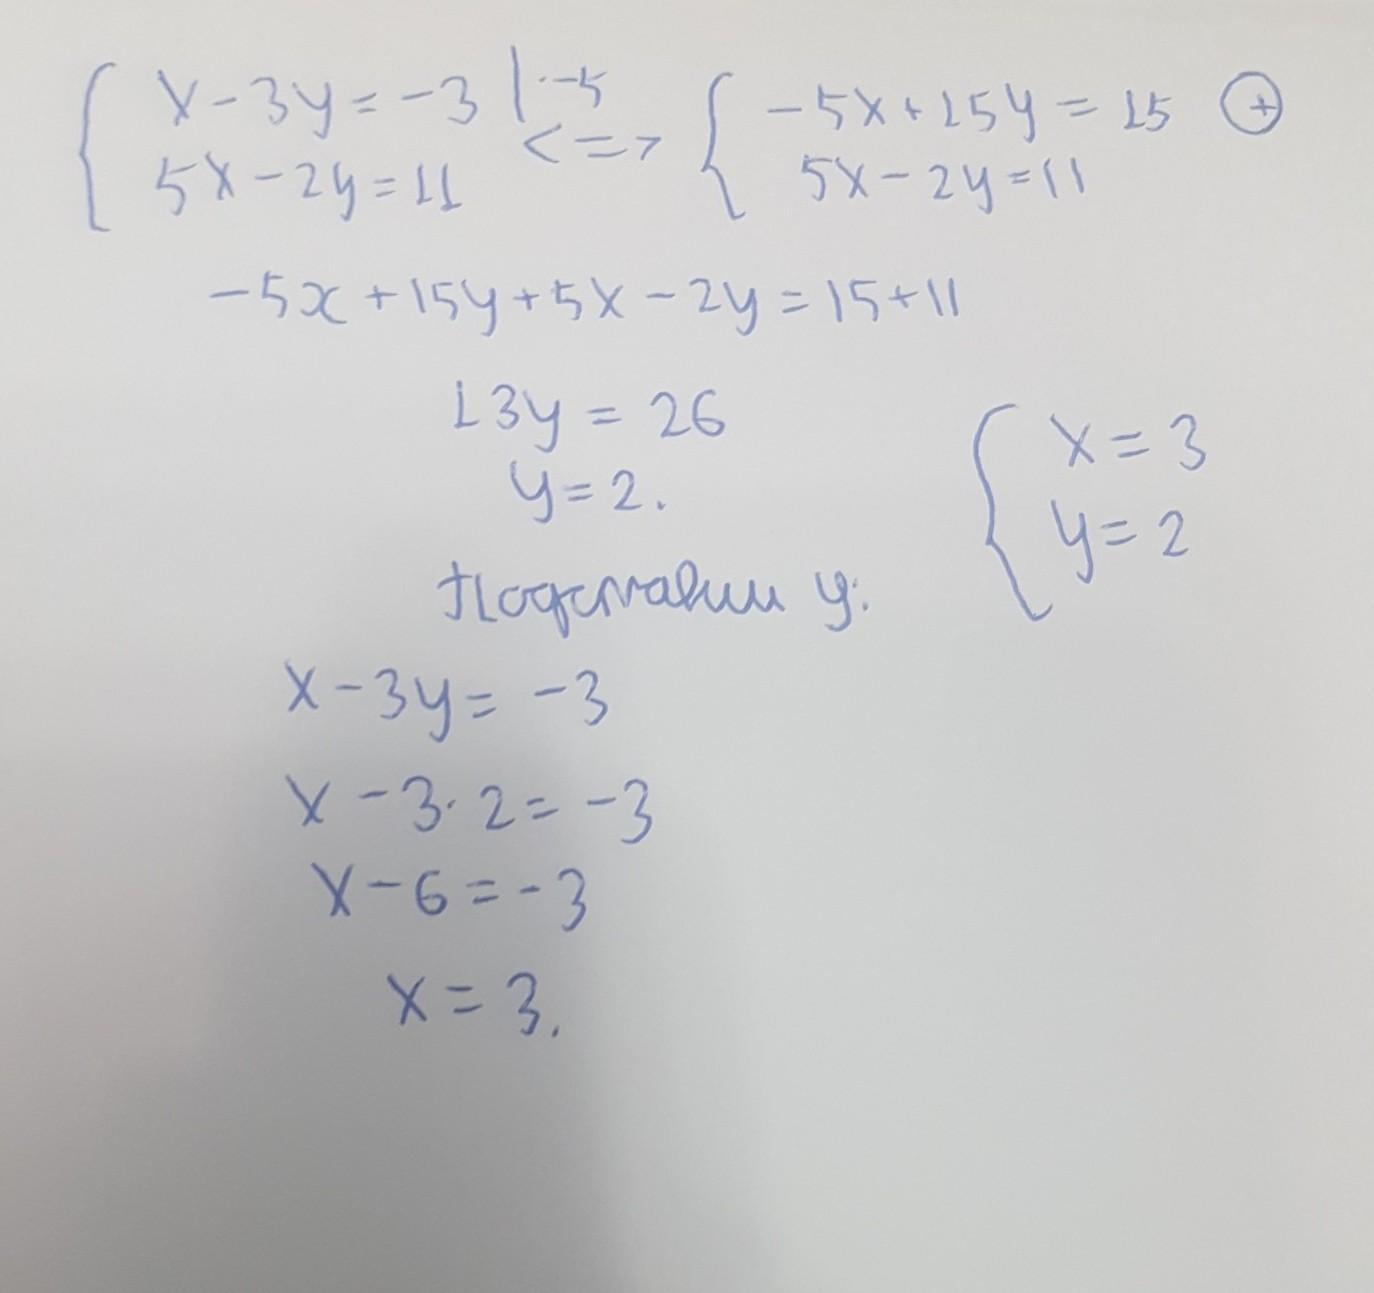 { x-3y=-3 |·-5 <=> { -5x+15y=15 ⊕
5x-2y=11 5x-2y=11
-5x+15y+5x-2y=15+11
13y=26
y=2.
{ x=3
y=2
Подставим y:
x-3y=-3
x-3·2=-3
x-6=-3
x=3.